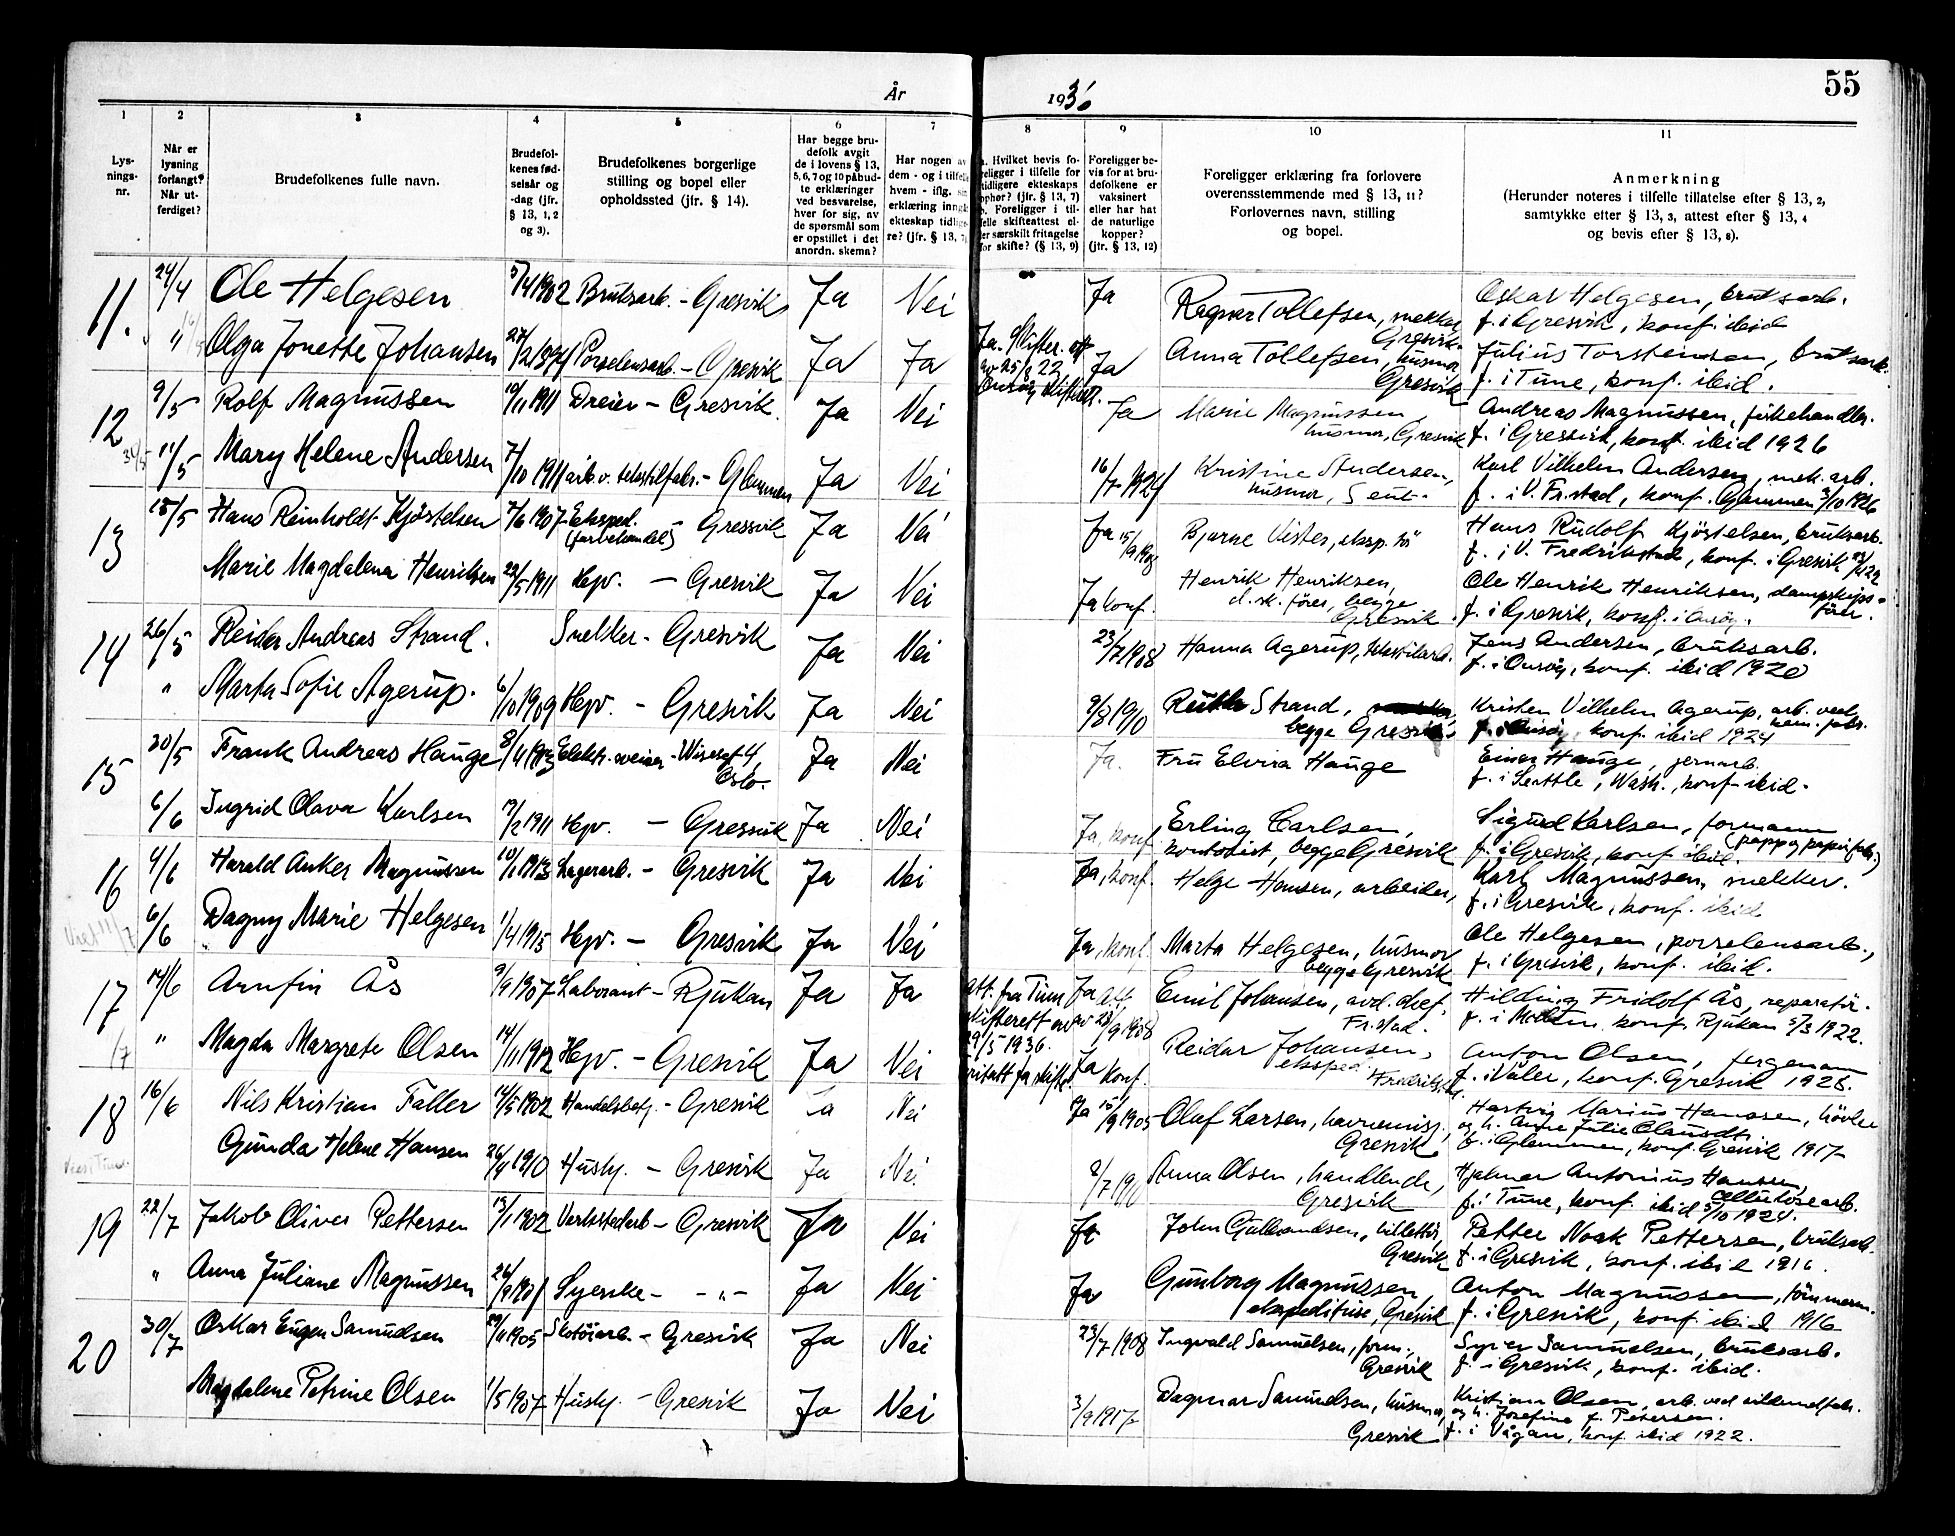 55
År 1936
1 2 3 4 5 6 7 8 9 10 11
Lys-
nings-
nr.
Når er
lysning
forlangt?
Når ut-
ferdiget?
Brudefolkenes fulle navn.
Brudefol-
kenes fød-
selsår og
-dag (jfr.
§ 13, 1, 2
og 3).
Brudefolkenes borgerlige
stilling og bopel eller
opholdssted (jfr. § 14).
Har begge bru-
defolk avgit
de i lovens § 13,
5, 6, 7 og 10 påbud-
te erklæringer
ved besvarelse,
hver for sig, av
de spørsmål som
er opstillet i det
anordn. skema?
Har nogen av
dem - og i tilfelle
hvem - iflg. sin
erklæring inngå
ekteskap tidlige-
re? (jfr. § 13, 7)
a. Hvilket bevis fo-
religger i tilfelle for
tidligere ekteskaps
ophør? (jfr. § 13, 7)
b. Foreligger i til-
felle skifteattest el-
ler særskilt fritagelse
for skifte? (§ 13, 9)
Foreligger be-
vis for at bru-
defolkene er
vaksinert
eller har hat
de naturlige
kopper?
(jfr. § 13, 12)
Foreligger erklæring fra forlovere
overensstemmende med § 13, 11?
Forlovernes navn, stilling
og bopel.
Anmerkning
(Herunder noteres i tilfelle tillatelse efter § 13, 2,
samtykke efter § 13, 3, attest efter § 13, 4
og bevis efter § 13, 8).
11. 24/4 Ole Helgesen 5/4 1902 Bruksarb. - Gresvik Ja Nei Ja Ragnar Tollefsen, mekker, Gresvik. Oskar Helgesen, bruksarb.
f. i Gresvik, konf. ibid
" Olga Jonette Johansen 27/2 1894 Porselensarb. - Gresvik Ja Ja Ja. Skifter. att. av 25/8 22 Onsøy skifterett. Ja Anna Tollefsen, husmor, Gresvik Julius Torstensen, bruksarb.
f. i Tune, konf. ibid.
12 9/5 Rolf Magnussen 10/11 1911 Dreier - Gresvik. Ja Nei Ja Marie Magnussen, husmor, Gresvik Andreas Magnussen, fiskehandler.
f. i Gressvik, konf. ibid 1926
11/5 Mary Helene Andersen 7/10 1911 arb. v. tekstilfabr. - Glemmen Ja Nei 16/7 1924 Kristine Andersen, husmor, Seut. Karl Vilhelm Andersen, mek. arb.
f. i V. Fr.stad, konf. Glemmen 3/10 1926
13 15/5 Hans Reinholdt Kjöstelsen 7/6 1907 Eksped. (farvehandel) - Gressvik Ja Nei Ja 15/9 1908 Bjarne Vister, eksp. Hans Rudolf Kjöstelsen, bruksarb.
f. i V. Fredrikstad, konf. i Gresvik
Marie Magdalena Henriksen 22/5 1911 Hjv. - Gresvik Ja Nei Ja konf. Henrik Henriksen, d.sk. förer, begge Gresvik. Ole Henrik Henriksen, dampskips-
förer.
f. i Gresvik, konf. i Onsöy.
14 26/5 Reidar Andreas Strand. Snekker - Gresvik Ja Nei 23/7 1908 Hanna Agerup, tekstilarb. Jens Andersen, bruksarb.
f. i Onsöy, konf. ibid 1920
" Marta Sofie Agerup. 6/10 1909 Hjv. - Gresvik Ja Nei 9/8 1910 Ruth Strand, begge Gresvik. Kristen Vilhelm Agerup, arb. ved
kem. fabr.
f. i Onsöy, konf. ibid 1924
15 30/5 Frank Andreas Hauge 8/11 1913 Elektr. sveiser - Oslo. Ja Nei Ja. Fru Elvira Hauge Einar Hauge, jernarb.
f. i Seattle, Wash., konf. ibid.
6/6 Ingrid Olava Karlsen 19/2 1911 Hjv. - Gressvik Ja Nei Ja, konf. Erling Carlsen, kontorist, begge Gresvik Sigurd Karlsen, formann
(papp og papirfabr.)
f. i Gresvik, konf. ibid.
16 4/6 Harald Anker Magnussen 10/1 1913 Lagerarb. - Gresvik Ja Nei Ja, konf. Helge Hansen, arbeider, Karl Magnussen, mekker.
f. i Gresvik, konf. ibid
6/6 Dagny Marie Helgesen 1/4 1915 Hjv. - Gresvik Ja Nei Ja, konf. Marta Helgesen, husmor begge Gresvik Ole Helgesen, porselensarb.,
f. i Gresvik, konf. ibid.
17 17/6 Arnfin Ås 9/9 1907 Laborant - Rjukan Ja Ja att. fra Tinn skifterett av 29/5 1936. Ja att. av 28/9 1908 Emil Johansen, avd. chef, Fr.stad. Hilding Fridolf Ås, reparatör.
f. i Modum, konf. Rjukan 5/3 1922.
" Magda Margrete Olsen 14/11 1912 Hjv. - Gresvik Ja Nei Ja konf. Reidar Johansen, eksped. Fredrikstad Anton Olsen, fergemann
f. i Våler, konf. Gresvik 1928.
18 16/6 Nils Kristian Faller 14/5 1902 Handelsbetj. - Gresvik Ja Nei Ja 15/9 1905 Olaf Larsen, havnemisj., Gresvik Hartvig Marius Hanssen, hövler
og h. Anne Julie Clausdtr.
f. i Glemmen, konf. Gresvik 1917
Gunda Helene Hansen 26/4 1910 Hush. - Gresvik Ja Nei 2/7 1910 Anna Olsen, handlende, Gresvik Hjalmar Antonius Hanssen,
cellulosearb.
f. i Tune, konf. ibid 5/10 1924.
19 22/7 Jakob Oliver Pettersen 13/1 1902 Verkstedarb - Gresvik Ja Nei Ja John Gulbrandsen, billettör, Gresvik Petter Noak Pettersen, bruksarb.
f. i Gresvik, konf. ibid 1916.
" Anna Juliane Magnussen 26/9 1901 Syerske - " - Ja Nei Ja Gunborg Magnussen, ekspeditrise, Gresvik Anton Magnussen, tömmerm.
f. i Gresvik, konf. ibid 1916
20 30/7 Oskar Eugen Samuelsen 29/11 1905 Skotöiarb. - Gresvik Ja Nei 23/7 1908 Ingvald Samuelsen, form., Gresvik Syver Samuelsen, bruksarb.
f. i Gresvik, konf. ibid.
Magdalene Petrine Olsen 1/5 1907 Hush. - Gresvik Ja Nei 3/9 1917 Dagmar Samuelsen, husmor, Gresvik Kristian Olsen, arb. ved sildemelfabr.
og h. Josefine f. Petersen.
f. i Vågan, konf. ibid 1922.